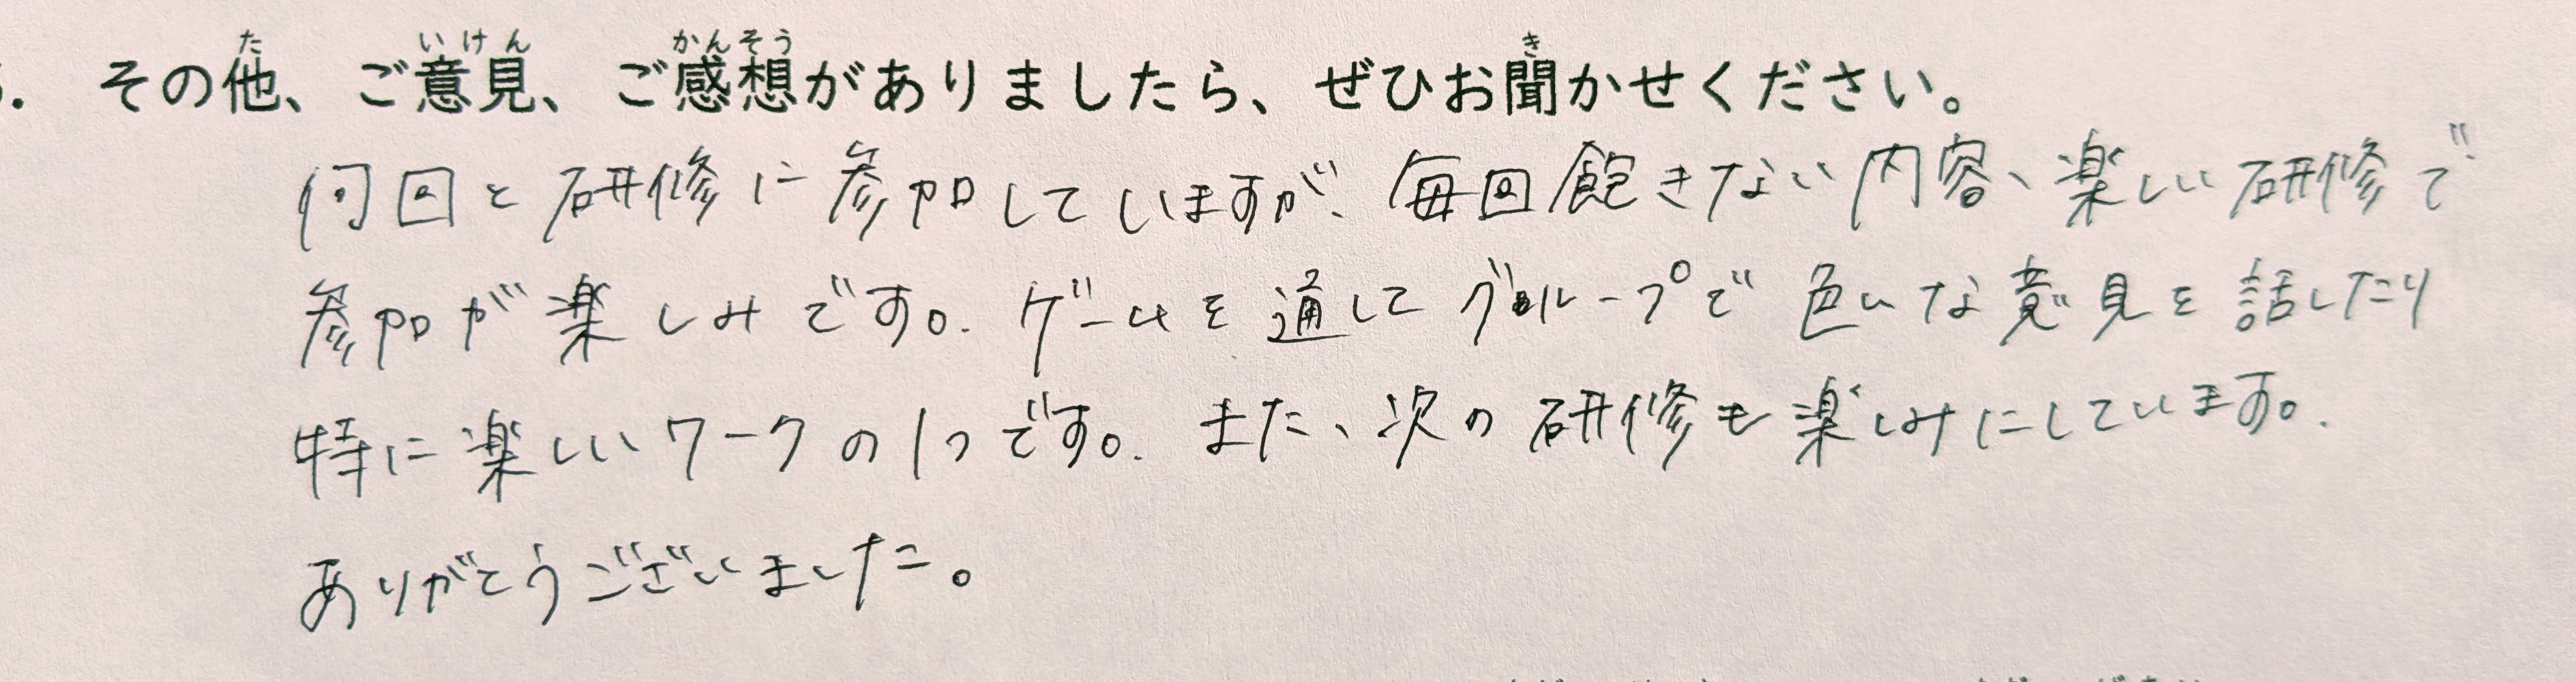 その他、ご意見、ご感想がありましたら、ぜひお聞かせください。
何回と研修に参加していますが、毎回飽きない内容、楽しい研修で
参加が楽しみです。ゲームを通してグループで色んな意見を話したり
特に楽しいワークの1つです。また、次の研修も楽しみにしています。
ありがとうございました。